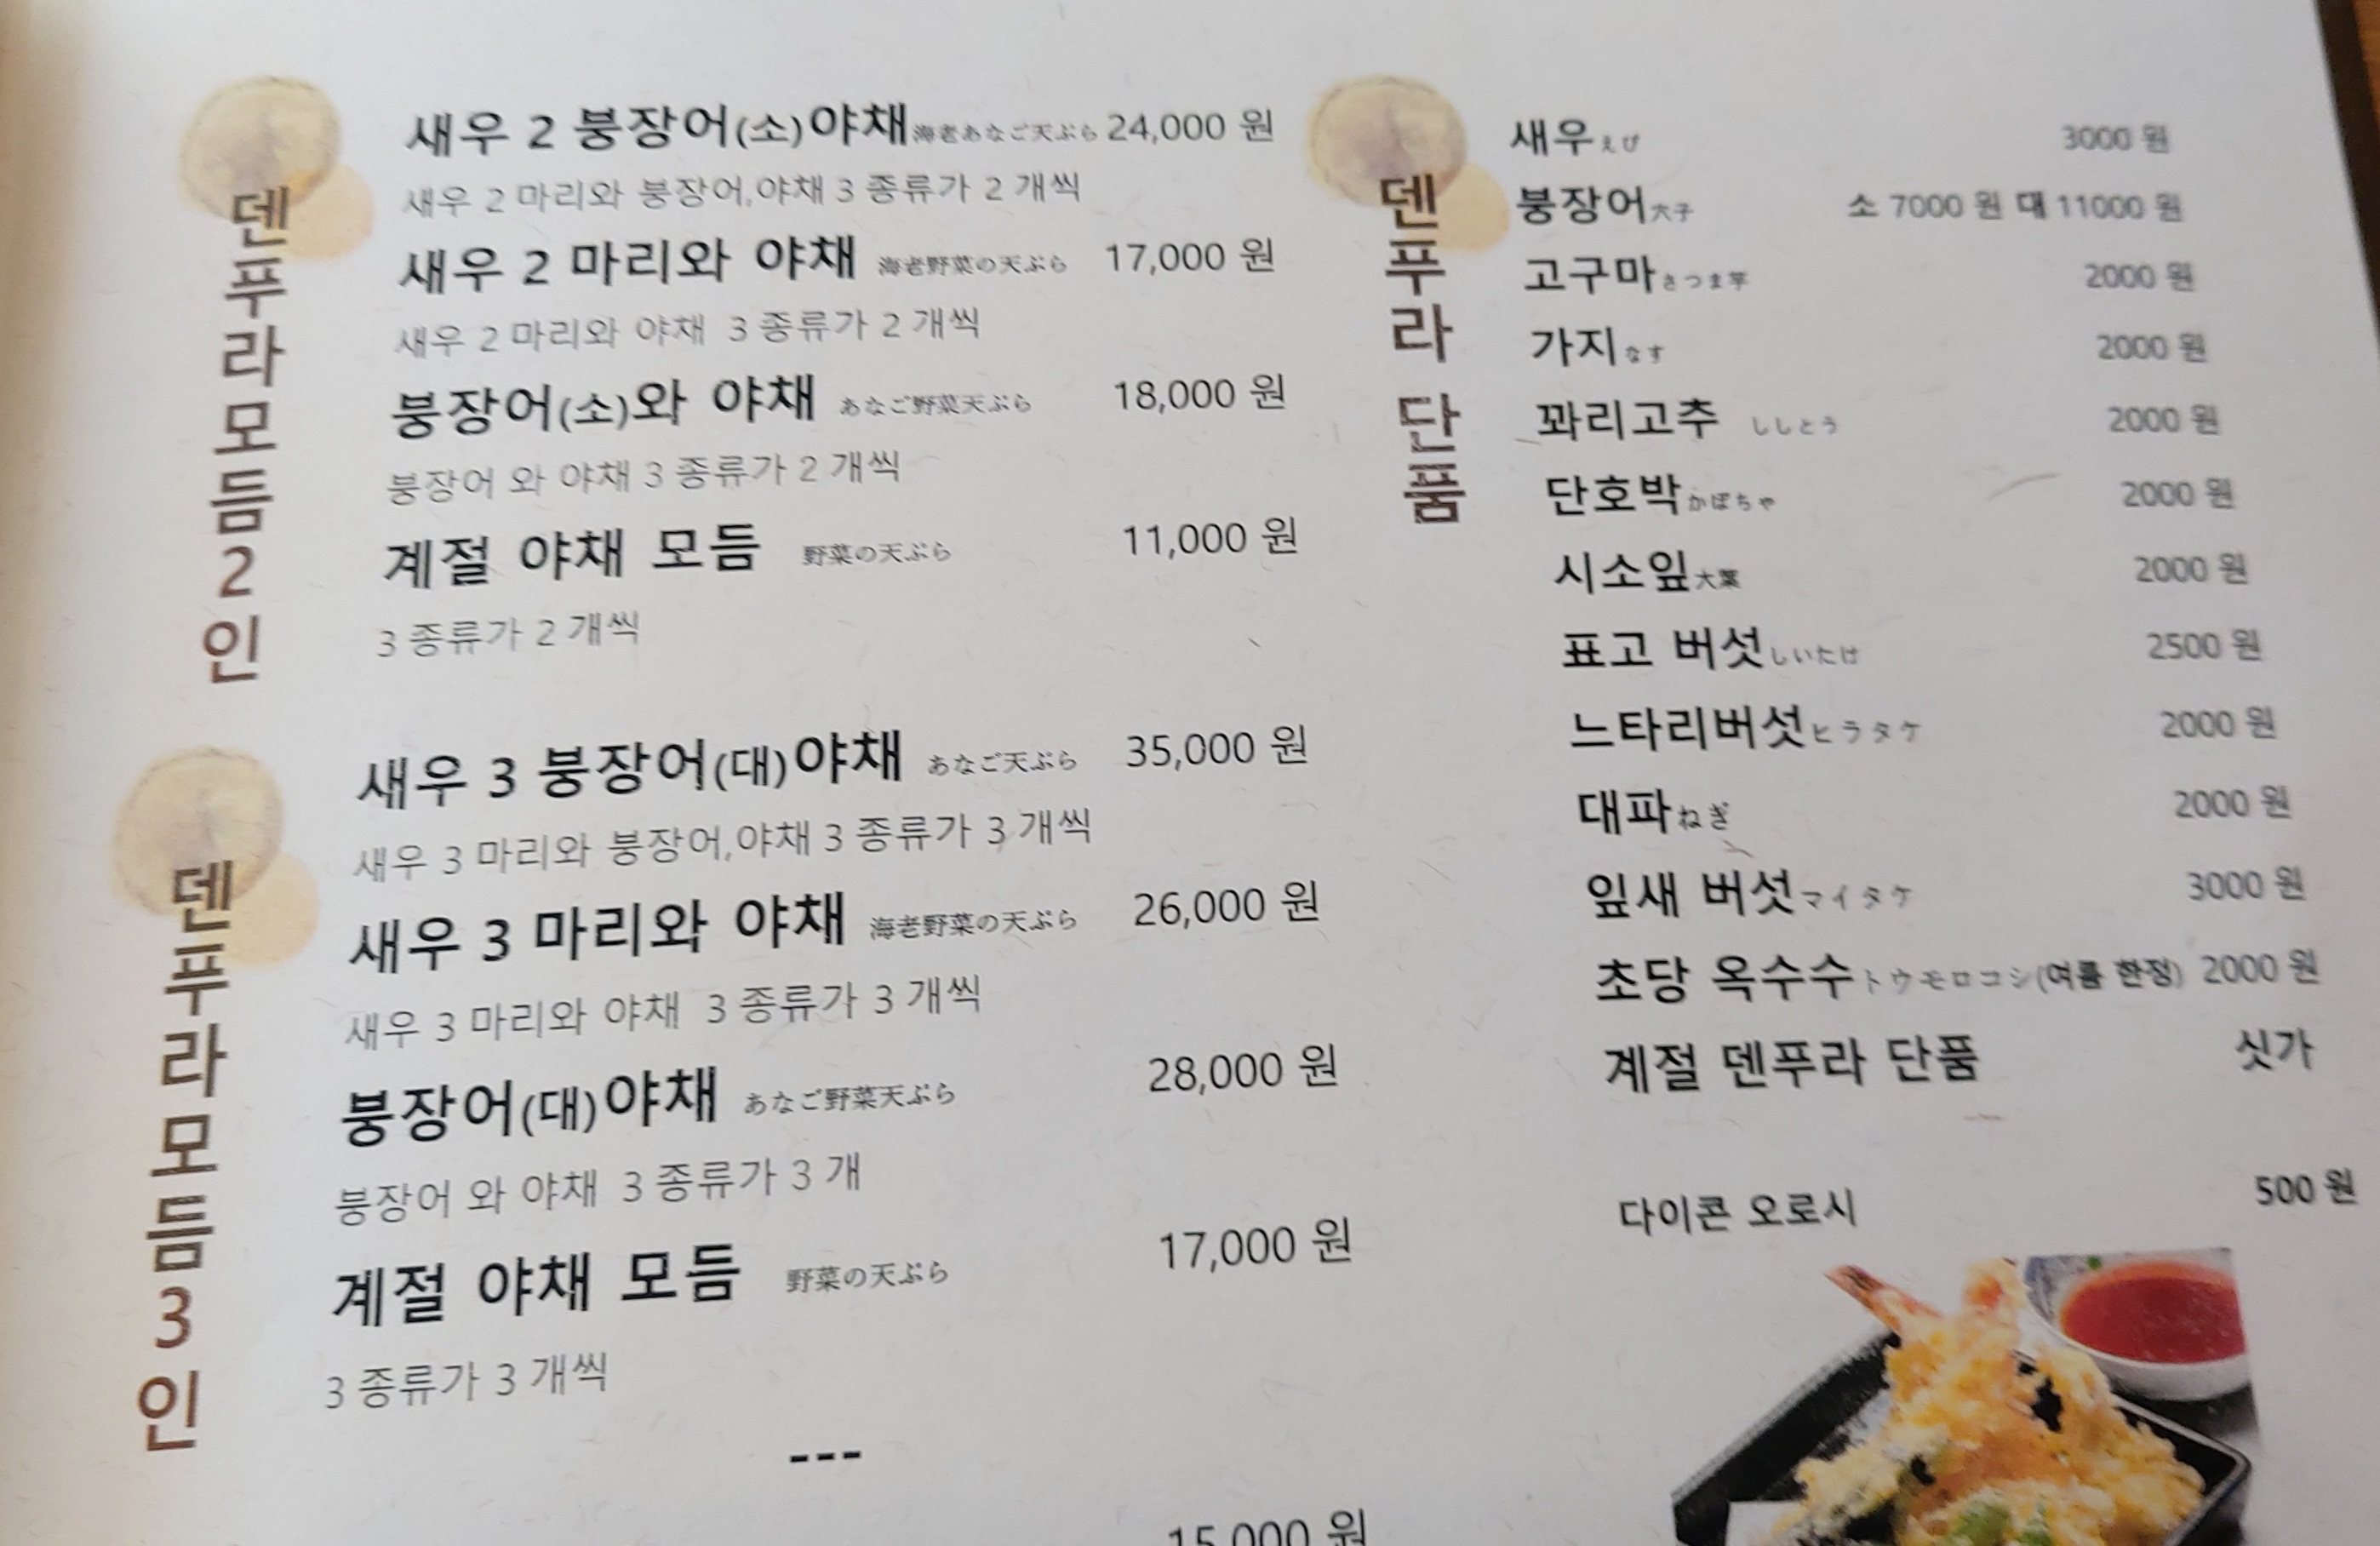 덴푸라모듬2인
새우 2 붕장어(소)야채海老あなご天ぷら 24,000 원
새우 2 마리와 붕장어,야채 3 종류가 2 개씩
새우 2 마리와 야채 海老野菜の天ぷら 17,000 원
새우 2 마리와 야채 3 종류가 2 개씩
붕장어(소)와 야채 あなご野菜天ぷら 18,000 원
붕장어 와 야채 3 종류가 2 개씩
계절 야채 모듬 野菜の天ぷら 11,000 원
3 종류가 2 개씩
덴푸라모듬3인
새우 3 붕장어(대)야채 あなご天ぷら 35,000 원
새우 3 마리와 붕장어,야채 3 종류가 3 개씩
새우 3 마리와 야채 海老野菜の天ぷら 26,000 원
새우 3 마리와 야채 3 종류가 3 개씩
붕장어(대)야채 あなご野菜天ぷら 28,000 원
붕장어 와 야채 3 종류가 3 개
계절 야채 모듬 野菜の天ぷら 17,000 원
3 종류가 3 개씩
---
15,000 원
덴푸라 단품
새우えび 3000 원
붕장어穴子 소 7000 원 대 11000 원
고구마さつま芋 2000 원
가지なす 2000 원
꽈리고추 ししとう 2000 원
단호박かぼちゃ 2000 원
시소잎大葉 2000 원
표고 버섯しいたけ 2500 원
느타리버섯ヒラタケ 2000 원
대파ねぎ 2000 원
잎새 버섯マイタケ 3000 원
초당 옥수수トウモロコシ(여름 한정) 2000 원
계절 덴푸라 단품 싯가
다이콘 오로시 500 원